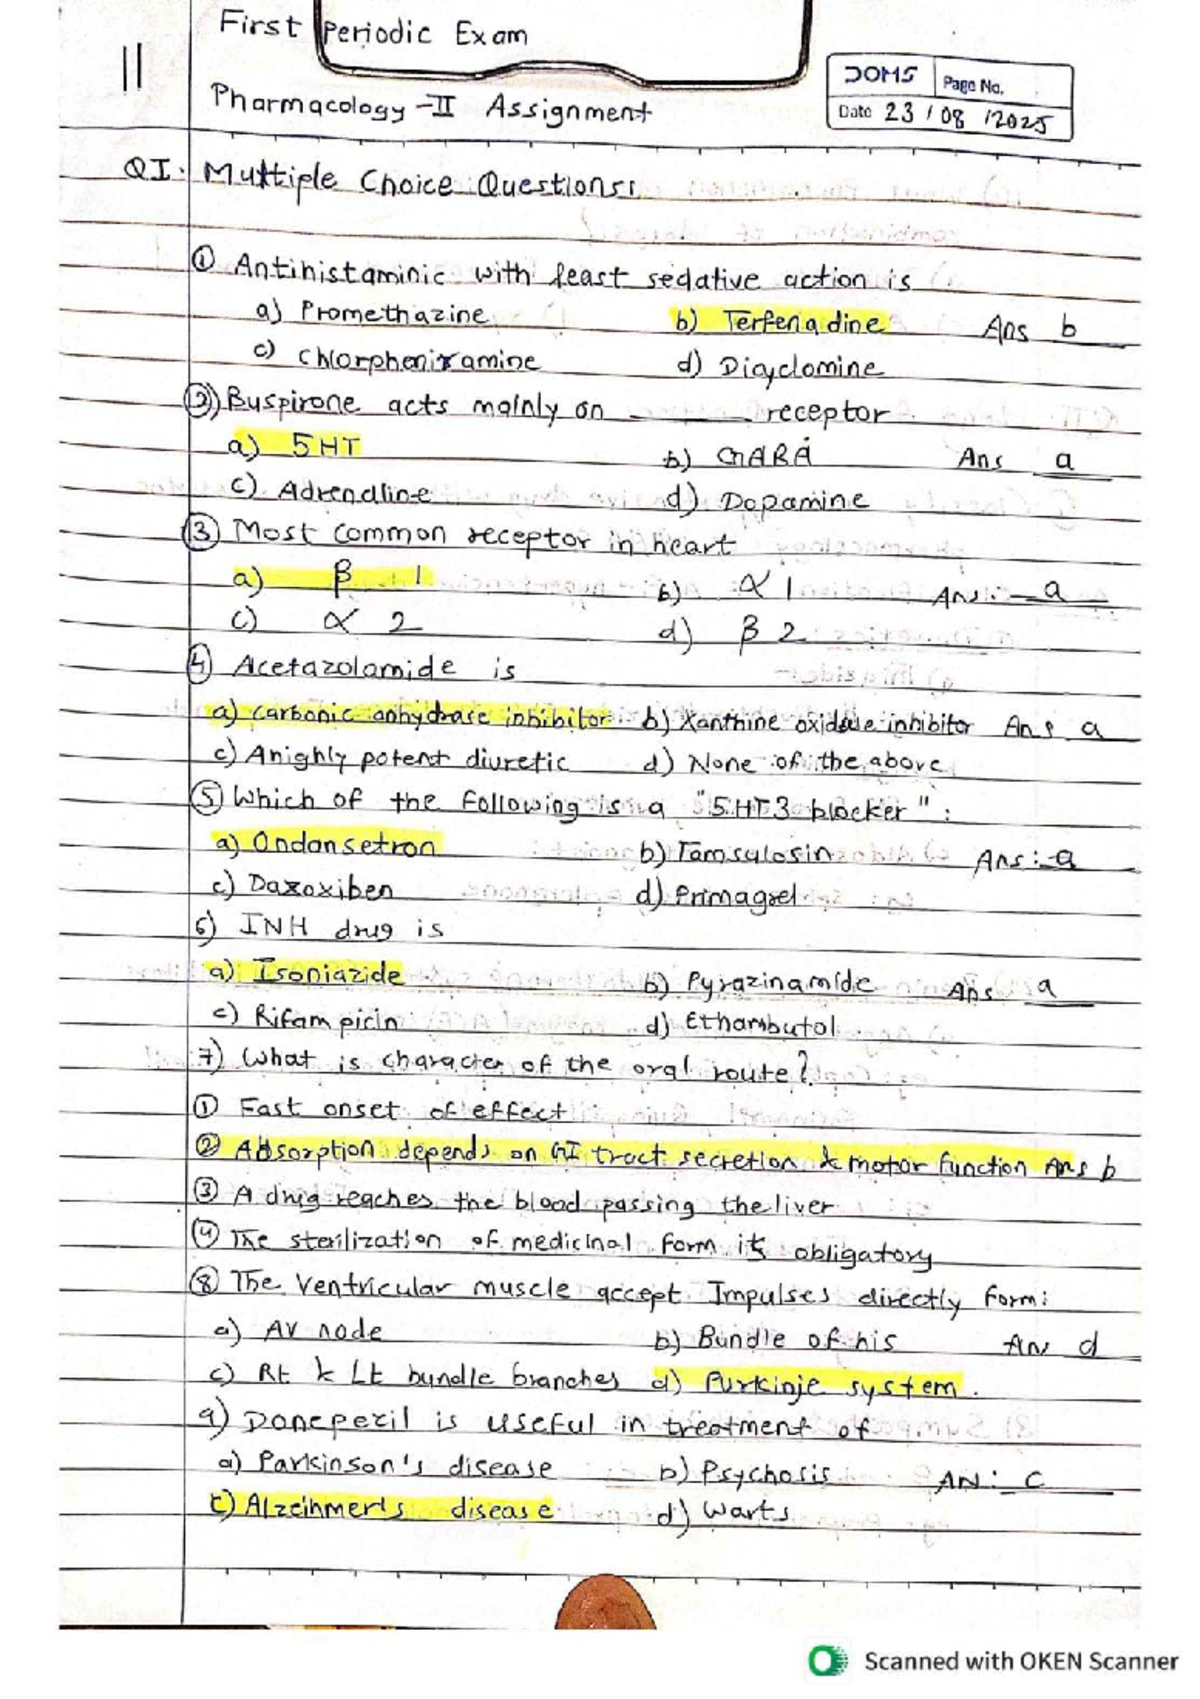 First Periodic Exam
11
DOMS Page No.
Pharmacology-II Assignment
Date 23/08/2025
QI. Multiple Choice Questions:
① Antihistaminic with least sedative action is
a) Promethazine b) Terfenadine Ans b
c) Chlorpheniramine d) Dicyclomine
②) Buspirone acts mainly on ______ receptor
a) 5HT b) GABA Ans a
c) Adrenaline d) Dopamine
③ Most common receptor in heart
a) β 1 b) α 1 Ans:- a
c) α 2 d) β 2
④ Acetazolamide is
a) carbonic anhydrase inhibitor b) Xanthine oxidase inhibitor Ans a
c) A highly potent diuretic d) None of the above
⑤ Which of the following is a "5HT3 blocker":
a) Ondansetron b) Tamsulosin Ans:-a
c) Dazoxiben d) Primagrel
6) INH drug is
a) Isoniazide b) Pyrazinamide Ans a
c) Rifampicin d) Ethambutol
7) What is character of the oral route?
① Fast onset of effect
② Absorption depends on GI tract secretion & motor function Ans b
③ A drug reaches the blood passing the liver
④ The sterilization of medicinal form is obligatory
⑧ The Ventricular muscle accept Impulses directly form:
a) AV node b) Bundle of his Ans d
c) Rt & Lt bundle branches d) Purkinje system.
9) Donepezil is useful in treatment of
a) Parkinson's disease b) Psychosis AN: c
c) Alzeihmer's disease d) Warts
Scanned with OKEN Scanner